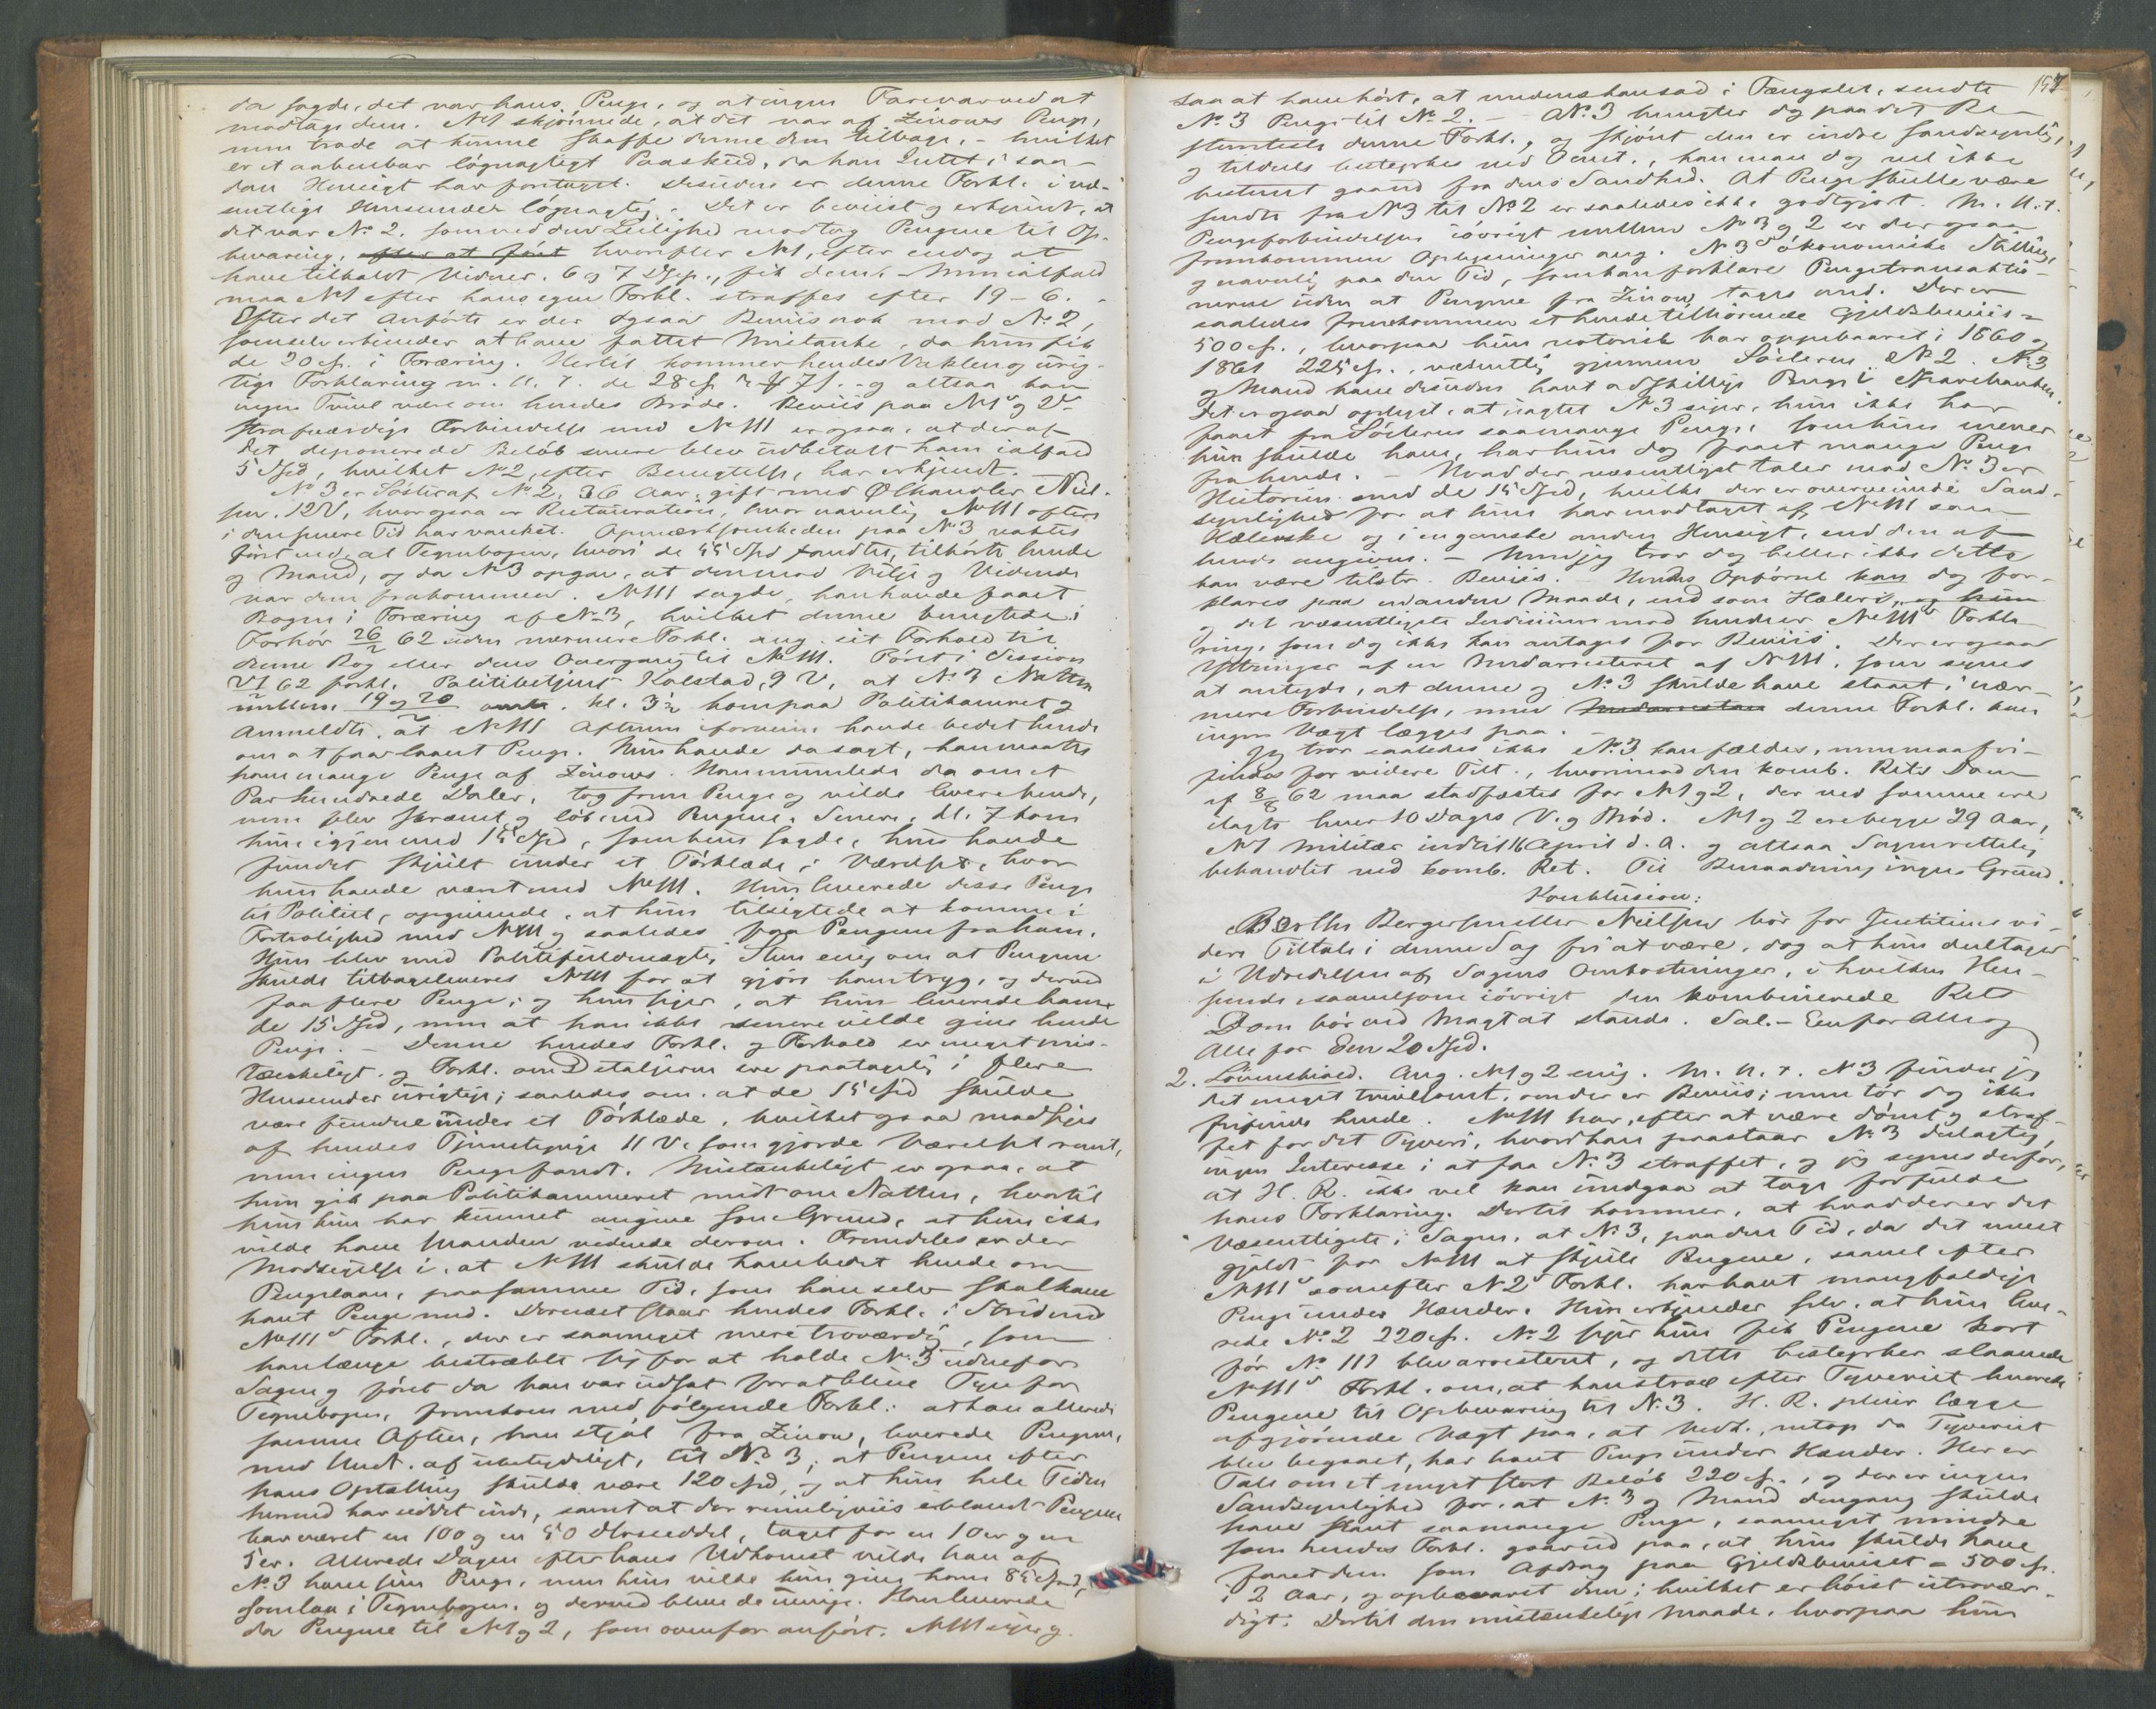 da sagde, det var hans Penge, og at ingen Fare var ved at
modtage dem. N 1 skjønnede, at det var af Zinows Penge,
men troede at kunne skaffe denne dem tilbage, - hvilket
er et aabenbar løgnagtigt Paaskud, da han Intet i saa-
dan Hensigt har foretaget. Desuden er denne Forkl. i væ-
sentlige Henseender løgnagtig. - Det er beviist og erkjendt, at
det var No 2, som ved den Leilighed modtog Pengene til Op-
bevaring, efter at først hvorefter N 1, efter endog at
have tilholdt Vidner 6 og 7 , fik dem. - Men ialfald
maa N 1 efter hans egen Forkl. straffes efter 19 - 6. -
Efter det Anførte er der ogsaa Beviis nok mod No 2,
som selv erkjender at have fattet Mistanke, da hun fik
de 20 i Foræring. Hertil kommer hendes Vaklen og urig-
tige Forklaring m. H. t. de 28 - og altsaa kan
ingen Tvivl være om hendes Brøde. Beviis paa N 1s og 2s
strafværdige Forbindelse med No 111 er ogsaa, at der af
det deponerede Beløb senere blev udbetalt ham ialfald
5 Spd, hvilket No 2, efter Benegtelse, har erkjendt. -
No 3 er Søster af No 2, 36 Aar, gift med Ølhandler Niel-
sen, 12 V, hvor ogsaa er Restauration, hvor navnlig No 111 oftere
i den senere Tid har vanket. Opmærksomheden paa No 3 vaktes
først ved, at Tegnebogen, hvori de 55 Spd fandtes, tilhørte hende
og Mand, og da No 3 opgav, at den mod Vilje og Vidende
var dem frakommen. N 111 sagde, han havde faaet
Bogen i Foræring af No 3, hvilket denne benegtede i
Forhør 26/2 62 uden nærmere Forkl. ang. sit Forhold til
denne Bog eller dens Overgang til No 111. Først i Session
 62 forkl. Politibetjent Kolstad, 9 V, at No 3 Natten
mellem 19 og 20 kl. 3½ kom paa Politikammeret og
anmeldte, at N 111 Aftenen iforveien havde bedet hende
om at faa laant Penge. Hun havde da sagt, han maatte
have mange Penge af Zinows. Han mumlede da om et
Par hundrede Daler, tog frem Penge og vilde levere hende,
men blev skræmt og løb med Pengene. Senere, kl. 7 kom
hun igjen med 15 Spd, som hun sagde, hun havde
fundet skjult under et Tørklæde i Værelset, hvor
hun havde været med No 111. Hun leverede disse Penge
til Politiet, opgivende, at hun tilsigtede at komme i
Fortrolighed med N 111 og saaledes faa Pengene fra ham.
Hun blev med Politifuldmægtig Steen enig om at Pengene
skulde tilbageleveres N 111 for at gjøre ham tryg, og derved
faa flere Penge; og hun siger, at hun leverede ham
de 15 Spd, men at han ikke senere vilde give hende
Penge. - Denne hendes Forkl. og Forhold er meget mis-
tænkeligt, og Forkl. om Detaljerne ere paatagelig i flere
Henseender urigtige; saaledes om, at de 15 Spd skulde
være fundne under et Tørklæde, hvilket ogsaa modsiges
af hendes Tjenestepige 11 V. som gjorde Værelset reent,
men ingen Penge fandt. Mistænkeligt er ogsaa, at
hun gik paa Politikammeret midt om Natten, hvortil
hun kun har kunnet angive som Grund, at hun ikke
vilde have Manden vidende derom. Fremdeles er der
Modsigelse i, at N 111 skulde have bedet hende om
Pengelaan, paa samme Tid, som han selv skal have
havt Penge med. Dernæst staar hendes Forkl. i Strid med
No 111s Forkl., der er saameget mere troværdig, som
han længe bestræbte sig for at holde No 3 udenfor
Sagen og først da han var udsat for at blive Tyv for
Tegnebogen, fremkom med følgende Forkl.: at han allerede
samme Aften, han stjal fra Zinow, leverede Pengene,
med Undt. af ubetydeligt, til No 3, at Pengene efter
hans Optælling skulde være 120 Spd, og at hun hele Tiden
herved har siddet inde, samt at der rimeligviis iblandt Pengene
har været en 100 og en 50 Dlrseddel, taget for en 10er og en
5er. Allerede Dagen efter hans Udkomst vilde han af
No 3 have sine Penge, men hun vilde kun give ham 85 Spd,
som laa i Tegnebogen, og derved bleve de uenige. Han leverede
da Pengene til N 1 og 2, som ovenfor anført. N 111 siger og
197
saa at have hørt, at medens han sad i Fængslet, sendte
No 3 Penge til No 2. - No 3 benegter dog paa det Be-
stemteste denne Forkl., og skjønt den er indre sandsynlig,
og tildeels bestyrkes ved Omst., kan man dog vel ikke
bestemt gaaud fra dens Sandhed. At Penge skulle være
sendte fra N 3 til No 2 er saaledes ikke godtgjort. M. H. t.
Pengeforbindelsen iøvrigt mellem No 3 og 2 er der ogsaa
fremkommen Oplysninger ang. N 3s økonomiske Stilling,
og navnlig paa den Tid, som han forklarer Pengetransaktio-
nerne uden at Pengene fra Zinow tages med. Der er
saaledes fremkommen et hende tilhørende Gjeldsbeviis =
500 , hvorpaa hun notorisk har oppebaaret i 1860 og
1861 225 , væsentlig gjennem Søsteren No 2. No 3
og Mand have desuden havt adskillige Penge i Sparebanken.
Det er ogsaa oplyst, at uagtet No 3 siger, hun ikke har
faaet fra Søsteren saamange Penge, som hun mener
hun skulde have, har hun dog faaet mange Penge
fra hende. - Hvad der væsentligst taler mod No 3 er
Historien med de 15 Spd, hvilke der er overveiende Sand-
synlighed for at hun har modtaget af No 111 som
Hælerske og i en ganske anden Hensigt, end den af
hende angivne. - Men jeg tror dog heller ikke dette
kan være tilstr. Beviis. - Hendes Opførsel kan dog for-
klares paa en anden Maade, end som Hæleri, og hun
og det væsentligste Indicium mod hende er No 111s Forkla-
ring, som dog ikke kan antages for Beviis. Der er ogsaa
Yttringer af en Medarresteret af N 111, som synes
at antyde, at denne og No 3 skulde have staaet i nær-
mere Forbindelse, men Medarrestan denne Forkl. kan
ingen Vægt lægges paa. -
Jeg tror saaledes ikke No 3 kan fældes, men maa fri-
findes for videre Tilt., hvorimod den komb. Rets Dom
af 8/8 62 maa stadfæstes for N 1 og 2, der ved samme ere
ilagte hver 10 Dages V. og Brød. N 1 og 2 ere begge 29 Aar,
N 1 Militær indtil 16 April d. A. og altsaa Sagen rettelig
behandlet ved komb. Ret. Til Benaadning ingen Grund.
Konklusion:
Berthe Bergersen eller Nielsen bør for Justitiens vi-
dere Tiltale i denne Sag fri at være, dog at hun deltager
i Udredelsen af Sagens Omkostninger, i hvilken Hen-
seende saavelsom iøvrigt den kombinerede Rets
Dom bør ved Magt at stande. Sal. - Een for Alle og
Alle for Een 20 Spd.
2. Løvenskiold. Ang. N 1 og 2 enig. M. H. t. No 3 finder jeg
det meget tvivlsomt, om der er Beviis; men tør dog ikke
frifinde hende. No 111 har, efter at være dømt og straf-
fet for det Tyveri, hvori han paastaar No 3 delagtig,
ingen Interesse i at faa No 3 straffet, og jeg synes derfor,
at H. R. ikke vel kan undgaa at tage for fulde
hans Forklaring. Dertil kommer, at hvad der er det
Væsentligste i Sagen, at No 3, paa den Tid, da det meest
gjaldt for N 111 at skjule Pengene, saavel efter
N 111s som efter N 2s Forkl. har havt mangfoldige
Penge under Hænder. Hun erkjender selv, at hun leve-
rede No 2 220 . No 2 siger hun fik Pengene kort
før No 111 blev arresteret, og dette bestyrker slaaende
N 111s Forkl. om, at han strax efter Tyveriet leverede
Pengene til Opbevaring til No 3. H. R. pleier lægge
afgjørende Vægt paa, at Vedk., netop da Tyveriet
blev begaaet, har havt Penge under Hænder. Her er
Tale om et meget stort Beløb 220 , og der er ingen
Sandsynlighed for, at No 3 og Mand dengang skulde
have havt saamange Penge, saameget mindre
som hendes Forkl. gaar ud paa, at hun skulde have
faaet dem som Afdrag paa Gjeldsbeviset = 500
i 2 Aar, og opbevaret dem; hvilket er høist utrovær-
digt. Dertil den mistænkelige Maade, hvorpaa hun